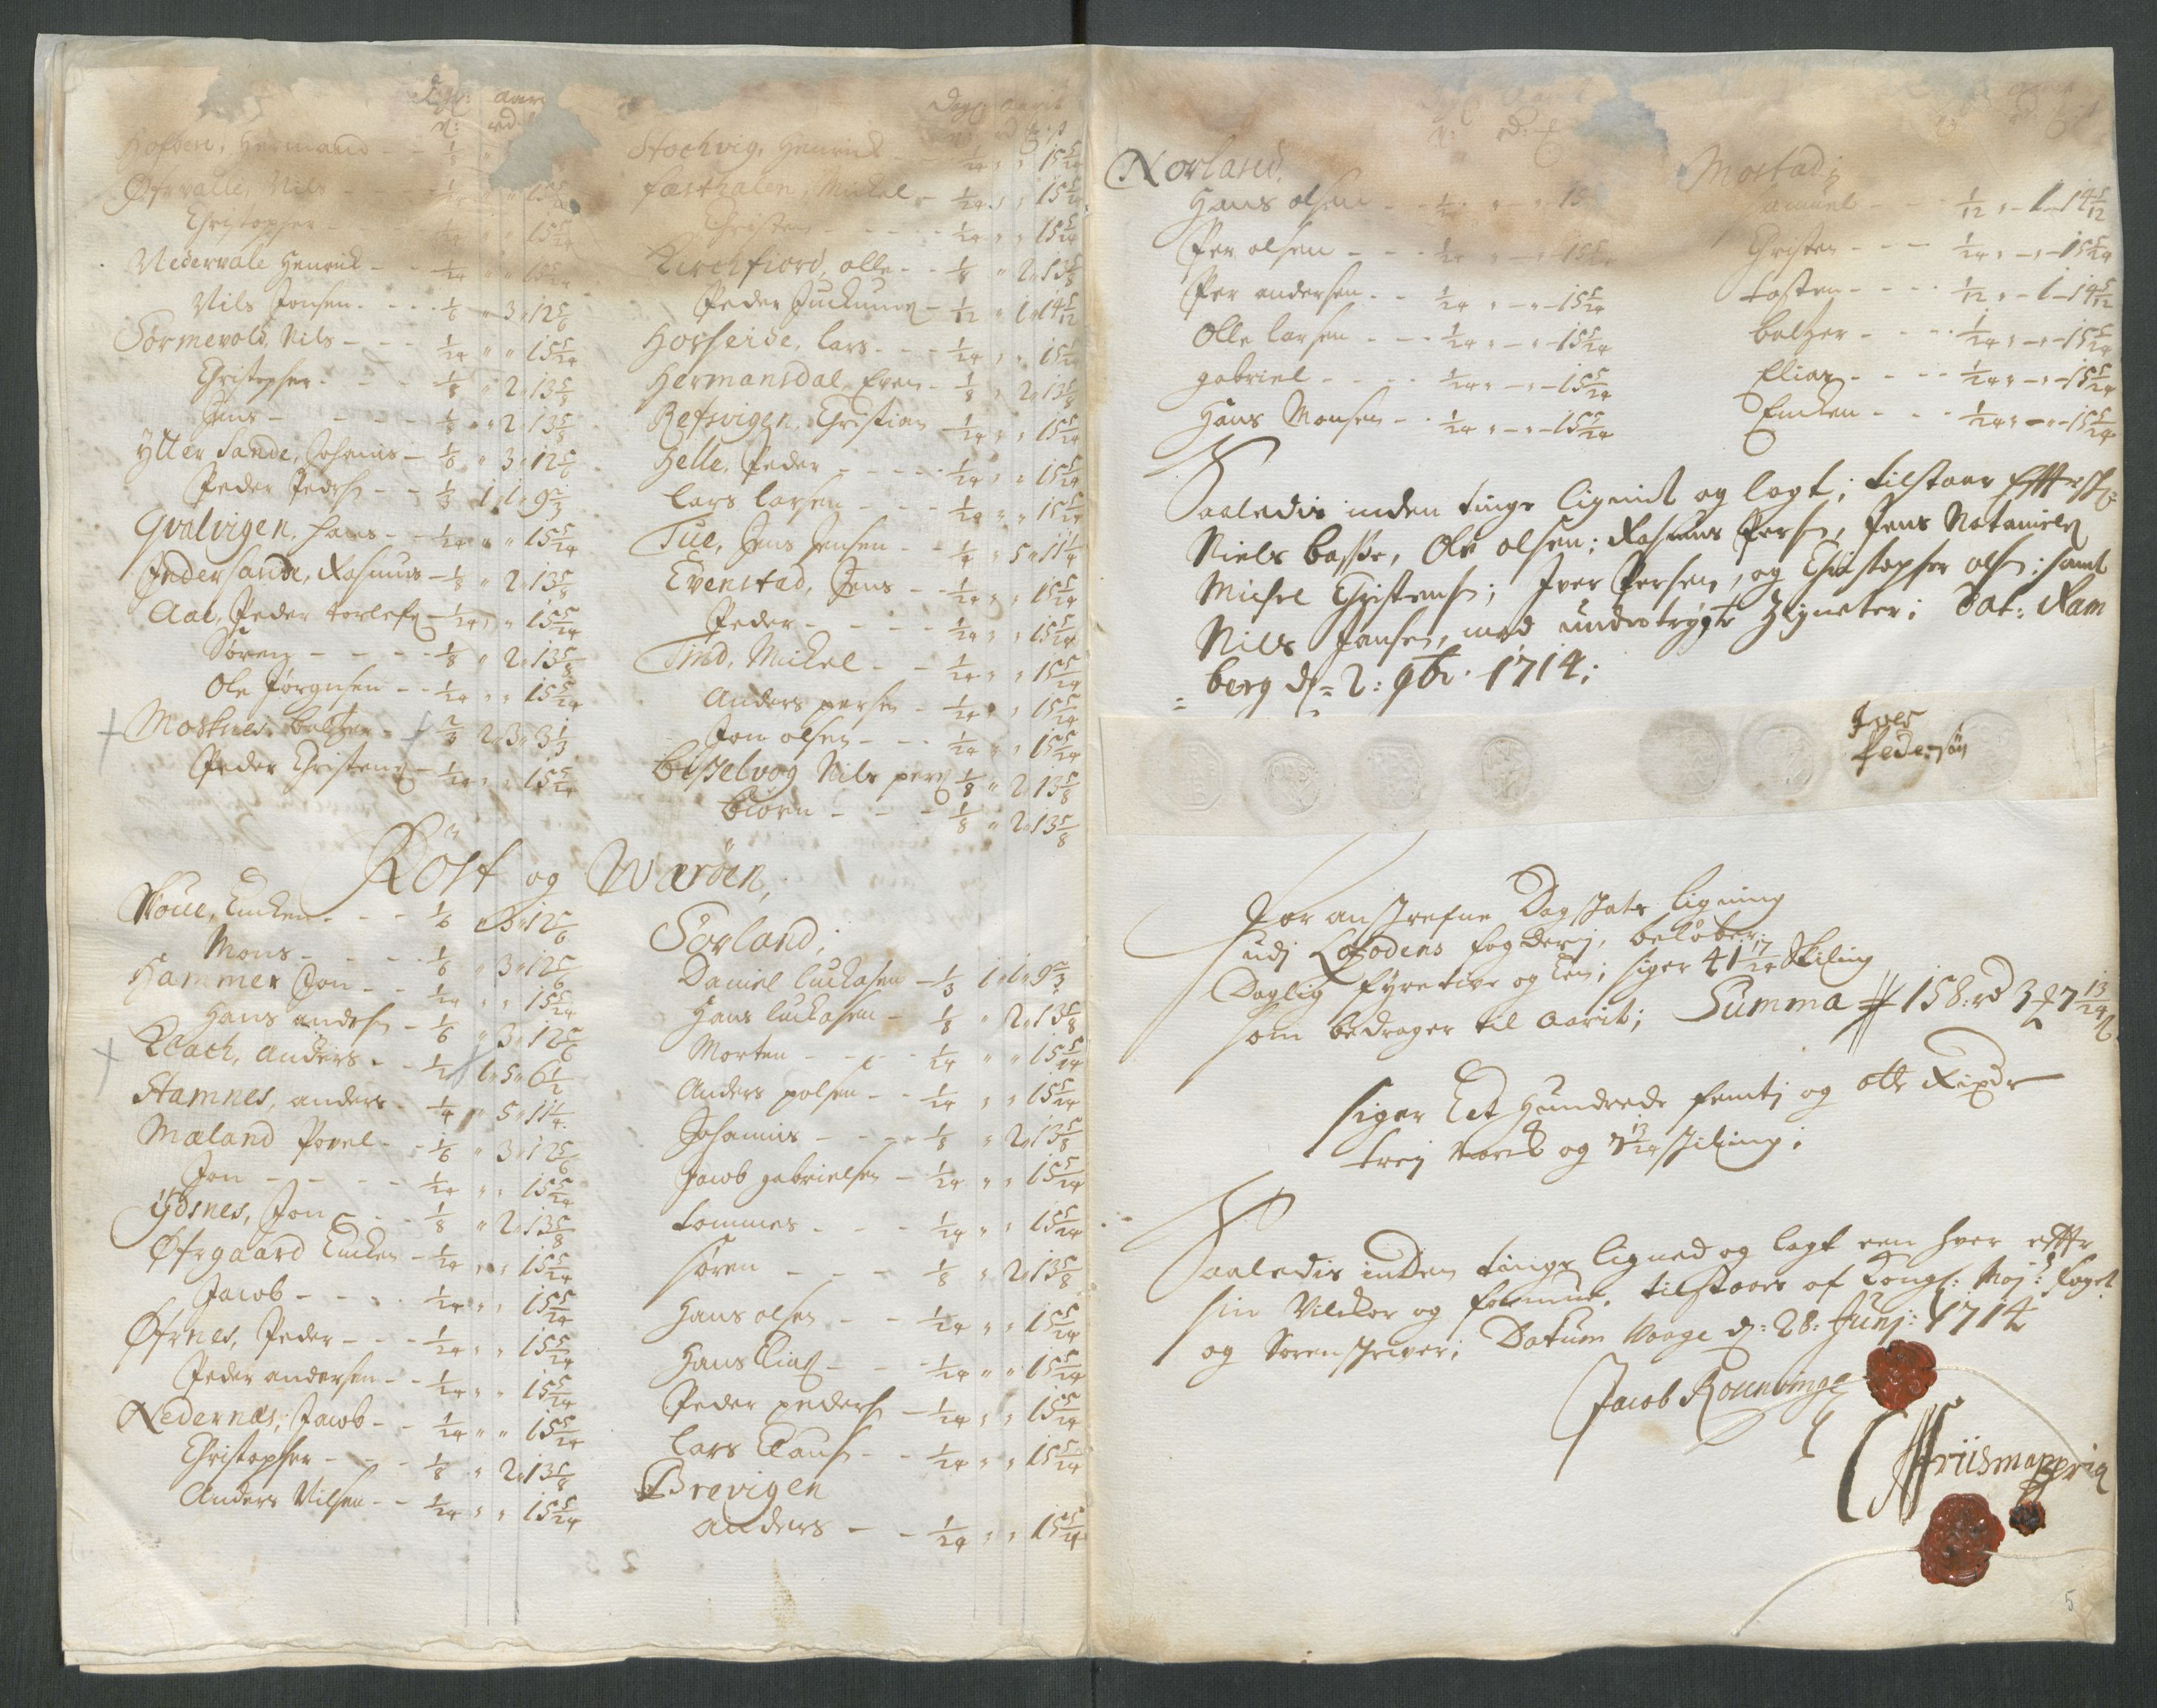 Hofden, Hermand - - 1/8
Øfrvalle, Nils - - 1/24 " " 15 5/24
Christopher - - 1/24 " " 15 5/24
Nedervale Henrich - - 1/24 " " 15 5/24
Nils Jonsen - - 1/6 " 3 " 12 5/6
Sørmevold, Nils - - 1/24 " " 15 5/24
Christopher - - 1/8 " 2 " 13 5/8
Jens - - 1/8 " 2 " 13 5/8
Ytter Sande, Johanis - 1/6 " 3 " 12 5/6
Peder Peders. - - 1/3 1 " 1 " 9 2/3
Qvalvigen, Hans - - 1/24 " " 15 5/24
Indersande, Rasmus - 1/8 " 2 " 13 5/8
Aae, Peder torlefs. - 1/24 " " 15 5/24
Søren - - 1/8 " 2 " 13 5/8
Ole Jørgensen - - 1/24 " " 15 5/24
Mosknes, baltzer - 2/3 2 " 3 " 3 1/3
Peder Christens. - 1/24 " " 15 5/24
Dagl. Aarit
Stochvig, Henrich - 1/24 " " 15 5/24
Færthalen, Mickel - 1/24 " " 15 5/24
Christen - - 1/24 " " 15 5/24
Kirchfiord, olle - - 1/8 " 2 " 13 5/8
Peder Juckums. - 1/12 " 1 " 14 5/12
Horseide, Lars - - 1/24 " " 15 5/24
Hermansdal, Even - 1/8 " 2 " 13 5/8
Refsvigen, Christian - 1/24 " " 15 5/24
Helle, Peder - - 1/24 " " 15 5/24
Lars larsen - - 1/24 " " 15 5/24
Tue, Jens Jensen - - 1/4 " 5 " 11 1/4
Evenstad, Jens - - 1/24 " " 15 5/24
Peder - - 1/24 " " 15 5/24
Tind, Mickel - - 1/24 " " 15 5/24
Anders persen - 1/24 " " 15 5/24
Jon olsen - - 1/24 " " 15 5/24
Bisselvog Nils pers. 1/8 " 2 " 13 5/8
Biørn - - 1/8 " 2 " 13 5/8
Röst og Wæröen,
Skoue, Encken - - 1/6 " 3 " 12 5/6
Mons - - 1/6 " 3 " 12 5/6
Hammer Jon - - 1/24 " " 15 5/24
Hans anders. - 1/6 " 3 " 12 5/6
Klach, anders - - 1/2 1 " 5 " 6 1/2
Stamnes, anders - 1/4 " 5 " 11 1/4
Mæland Povel - - 1/6 " 3 " 12 5/6
Jon - - 1/24 " " 15 5/24
Ydsnes, Jon - - 1/8 " 2 " 13 5/8
Øfrgaard Encken - 1/24 " " 15 5/24
Jacob - - 1/24 " " 15 5/24
Øfrnes, Peder - - 1/24 " " 15 5/24
Peder andersen - - 1/24 " " 15 5/24
Nedernæs, Jacob - - 1/24 " " 15 5/24
Christopher - - 1/8 " 2 " 13 5/8
Anders Nilsen - - 1/24 " " 15 5/24
Sørland;
Daniel luckasen - 1/3 1 " 1 " 9 2/3
Hans luckasen - 1/8 " 2 " 13 5/8
Morten - - 1/24 " " 15 5/24
Anders polsen - - 1/24 " " 15 5/24
Johannis - - 1/8 " 2 " 13 5/8
Jacob gabrielsen - 1/24 " " 15 5/24
Tommes - - 1/24 " " 15 5/24
Søren - - 1/8 " 2 " 13 5/8
Hans olsen - - 1/24 " " 15 5/24
Hans Elias. - - 1/24 " " 15 5/24
Peder peders. - 1/24 " " 15 5/24
Lars Claus. - - 1/24 " " 15 5/24
Brevigen
anders - - 1/24 " " 15 5/24
Norland,
Hans olsen - - 1/24 " " 15
Per olsen - - 1/24 " - " 15 5/24
Per andersen - - 1/24 " - " 15 5/24
Olle larsen - - 1/24 " - " 15 5/24
gabriel - - 1/24 " - " 15 5/24
Hans Monsen - - 1/24 " - " 15 5/24
Mostad;
Samuel - - 1/12 " - 1 - 14 5/12
Christen - - 1/24 " - " 15 5/24
Tosten - - 1/12 " - 1 - 14 5/12
baltzer - - 1/24 " - " 15 5/24
Elias - - 1/24 " - " 15 5/24
Encken - - 1/24 " - " 15 5/24
Saaledis inden tinge lignid og lagt; tilstaar
Niels basse, Ole olsen; Rasmus Pers., Jens Nataniels.
Michel Christens.; Iver Persen, og Christopher ols.; samt
Nils Jansen, med undertrygte Zigneter; Dat: Ram
berg d. 2: 9br. 1714;
Iver
Pedersøn
Foranskrefne Dagskats ligning
udj Lofodens fogderj, beløber;
Daglig fyretive og Een; siger 41 17/24 Skiling
som bedrager til Aarit; Summa 158: rd 3 # 7 13/24 s
siger Eet Hundrede femtj og otte Rixdr
trej Mark og 7 13/24 skiling;
Saaledis inden tinge lignedog lagt een hver effter
sin Vilckor og formue, tilstaaes af Kongl: May: foget
og Sorenskriver; Datum Vaage d: 28: Junj: 1714
Jacob Rosenvinge
Friis mappria
5